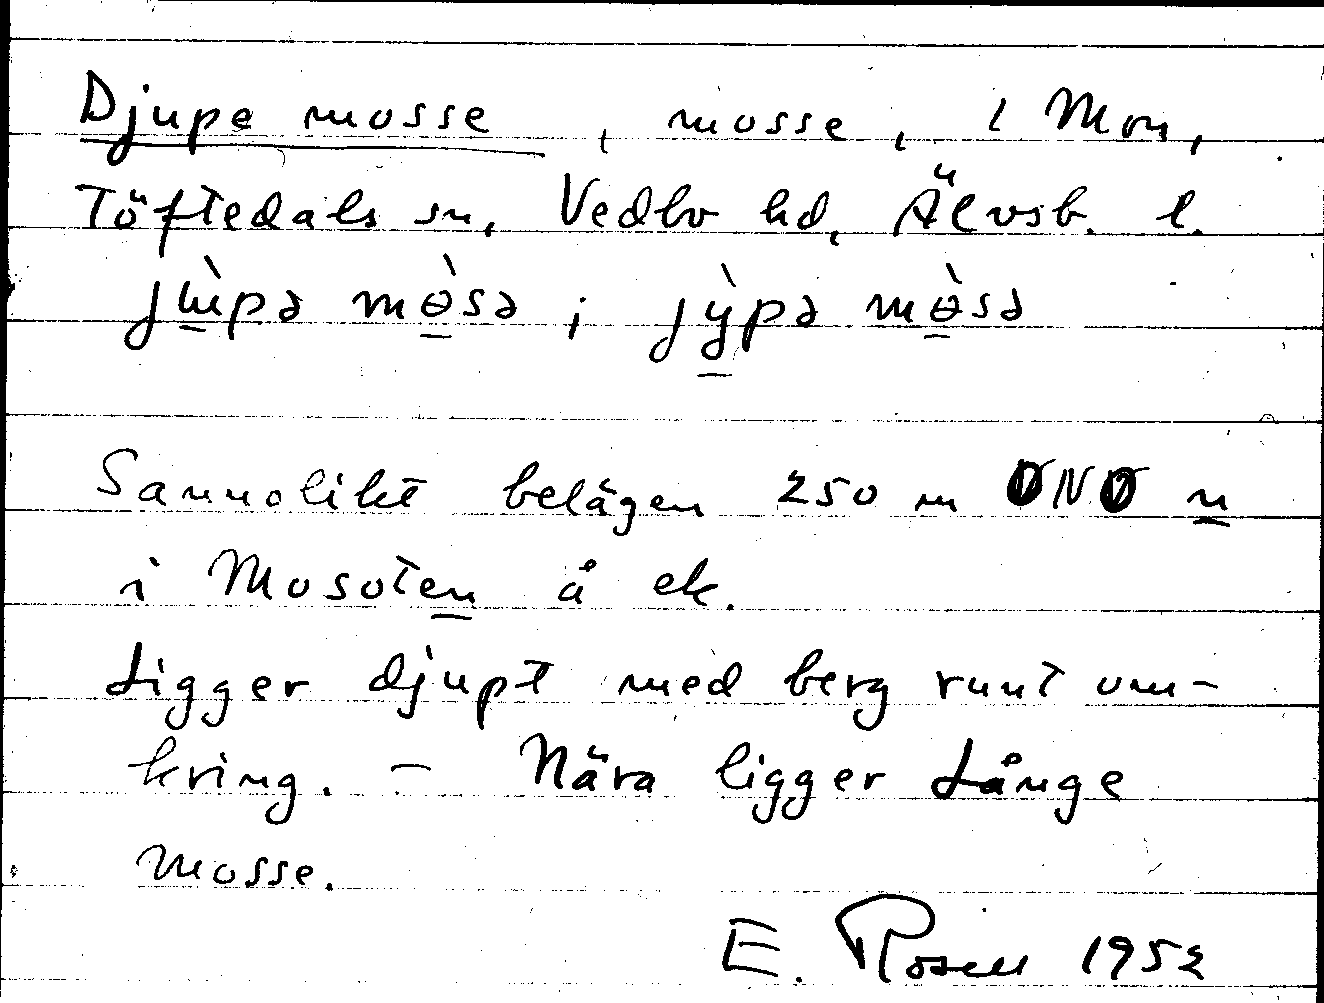 Djupe mosse, mosse, i Mon,
Töftedals sn, Vedbo hd, Älvsb. l.
jɯ̀pə mɵ̀sə ; jỳpə mɵ̀sə
Sannolikt belägen 250 m ONO n
i Mosoten å ek.
Ligger djupt med berg runt om-
kring. – Nära ligger Långe
mosse.
E. Rosell 1952